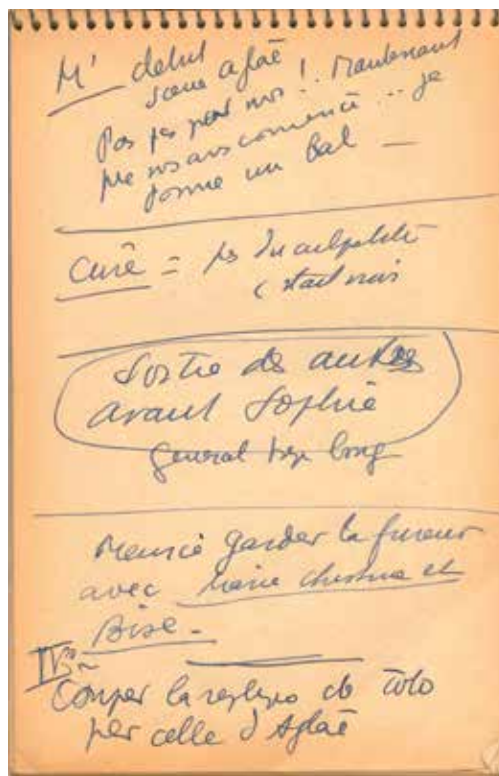 M' debut
scene aglaé
Pas pas pour nos ! . Maintenant
que ns avons commencé .. je
donne un bal —
Curé = pas
c'était mais
Sortie des autres
avant Sophie
General trop long
garder la fureur
avec Marie christine et
Bise -
Couper la replique de Toto
par celle d'Aglaé